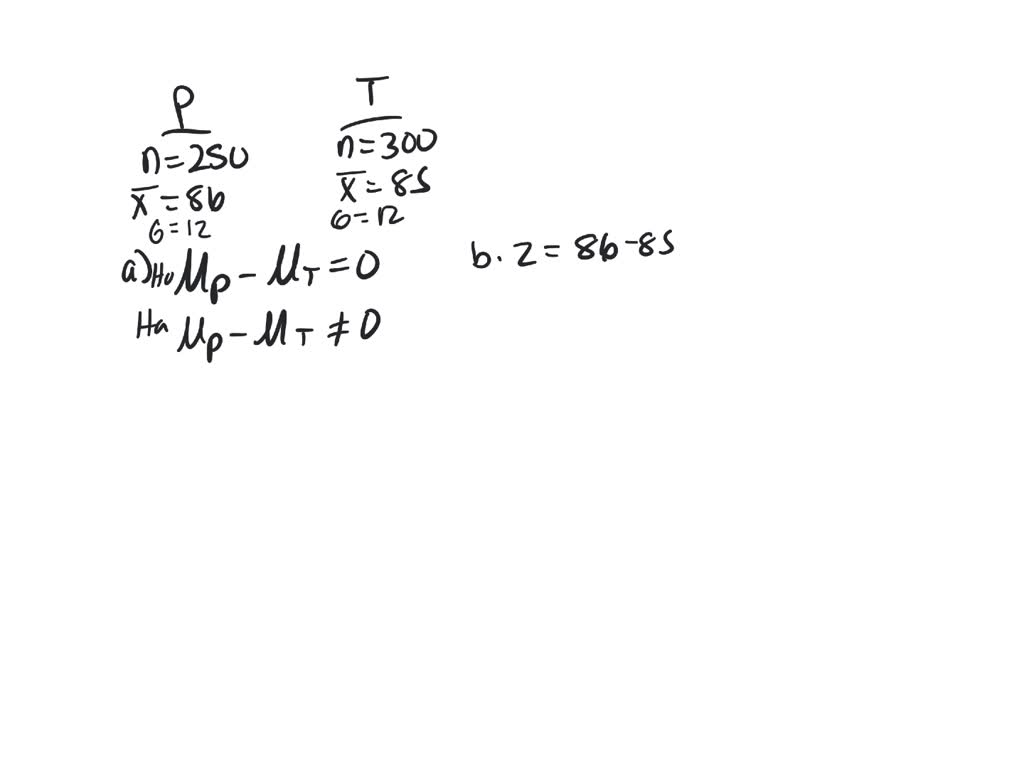 P
n=250
x̄=86
σ=12
T
n=300
x̄=85
σ=12
a) H0 μP - μT = 0
Ha μP - μT ≠ 0
b. z = 86-85